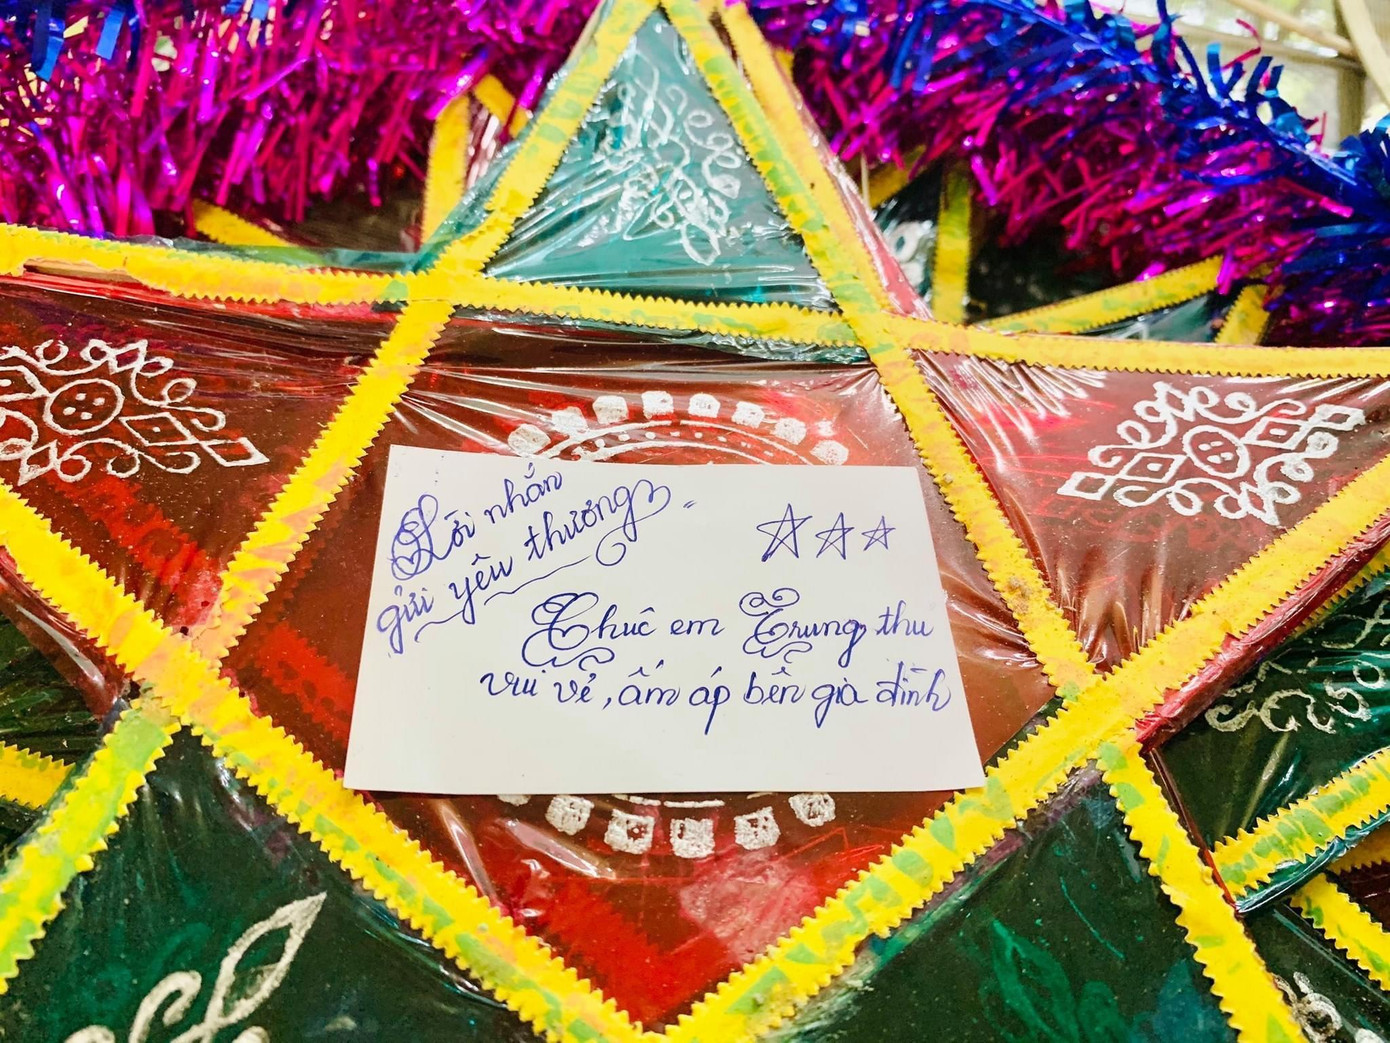 Lời nhắn
gửi yêu thương
Chúc em Trung thu
vui vẻ, ấm áp bên gia đình